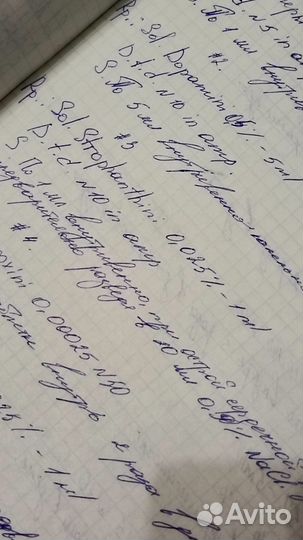 N 5 in amp
S. По 1 мл внутри
#2.
Rp.: Sol. Dopamini 0,5% - 5 ml
D. t. d. N 10 in amp.
S. По 5 мл внутривенно
#3
Rp.: Sol. Strophanthini 0,025% - 1 ml
D. t. d. N 10 in amp
S. По 1 мл внутривенно при острой сердечной
предварительно разведя в 20 мл 0,9% NaCl.
#4.
oxini 0,00025 N50
внутрь 2 раза
25% - 1 ml
Avito